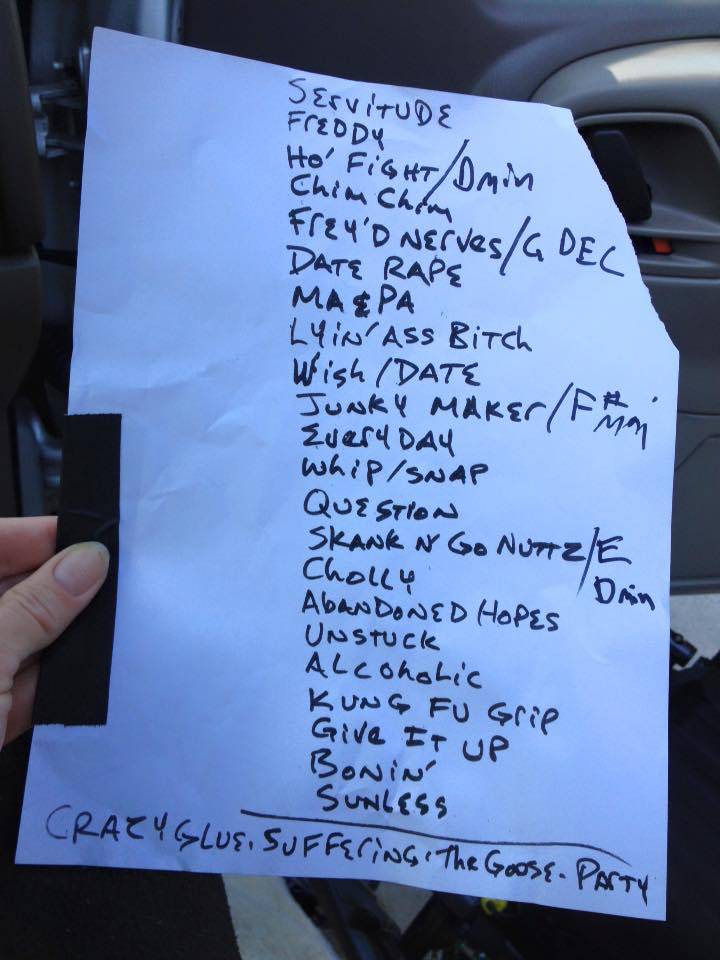 SERVITUDE
FREDDY
HO' FIGHT/Dmin
Chim Chim
FREY'D NERVES/G DEC
DATE RAPE
MA & PA
LYIN' ASS BITCH
WISH/DATE
JUNKY MAKER/F# Min
EVERYDAY
WHIP/SNAP
QUESTION
SKANK N' GO NUTTZ/E
Dmin
CHOLLY
ABANDONED HOPES
UNSTUCK
ALCOHOLIC
KUNG FU GRIP
GIVE IT UP
BONIN'
SUNLESS
CRAZY GLUE. SUFFERING. THE GOOSE. PARTY